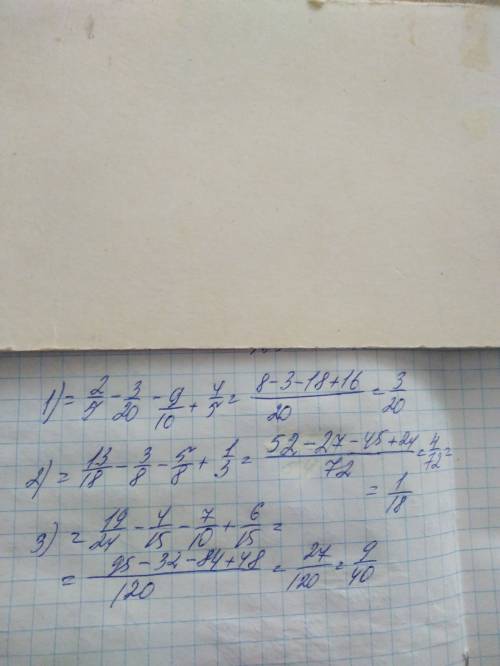 1) = 2/5 - 3/20 - 9/10 + 4/5 = (8-3-18+16)/20 = 3/20
2) = 13/18 - 3/8 - 5/8 + 1/3 = (52-27-45+24)/72 = 4/72 =
= 1/18
3) = 19/24 - 4/15 - 7/10 + 6/15 =
= (95-32-84+48)/120 = 27/120 = 9/40